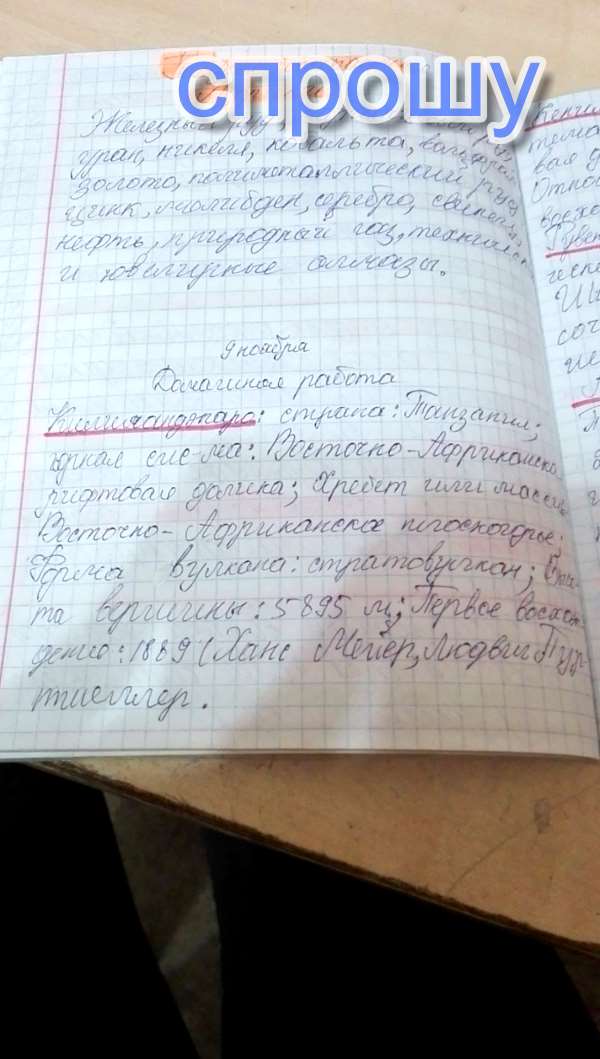 спрошу
Железный руд
уран, никеля, кобальта, вольфрам
золото, полиметаллический руд
цинк, молибден, серебро, свинец,
нефть, природный газ, техническ
и ювелирные алмазы.
9 ноября
Домашная работа
Килиманджаро: страна: Танзания;
горная сис-ма: Восточно-Африканска
рифтовая долина; Хребет или массив
Восточно-Африканское плоскогорье;
Форма вулкана: стратовулкан; Высо
та вершины: 5895 м; Первое восхож
дение: 1889 (Ханс Мейер, Людвиг Пур-
тшеллер.
Кени
тема
вая д
Относ
восхо